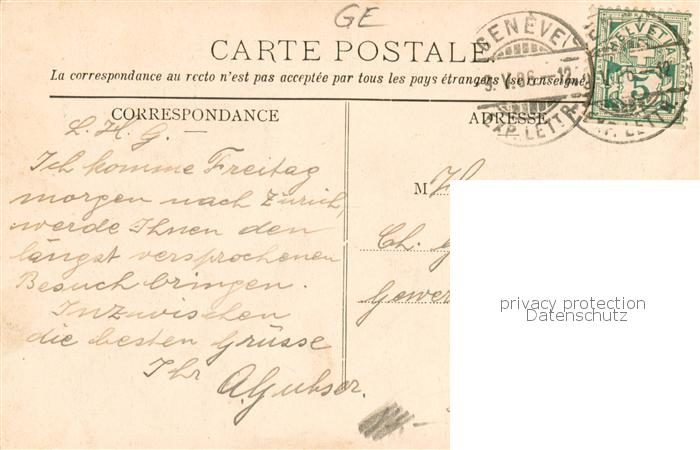 GE
CARTE POSTALE
La correspondance au recto n'est pas acceptée par tous les pays étrangers (se renseigner
GENÈVE
EXP. LETTR.
HELVETIA
5
CORRESPONDANCE
ADRESSE
L. H. G. —
Ich komme Freitag
morgen nach Zürich,
werde Ihnen den
längst versprochenen
Besuch bringen.
Inzwischen
die besten Grüsse
Ihr A. Gubser.
M
Ch.
Gewer
privacy protection
Datenschutz